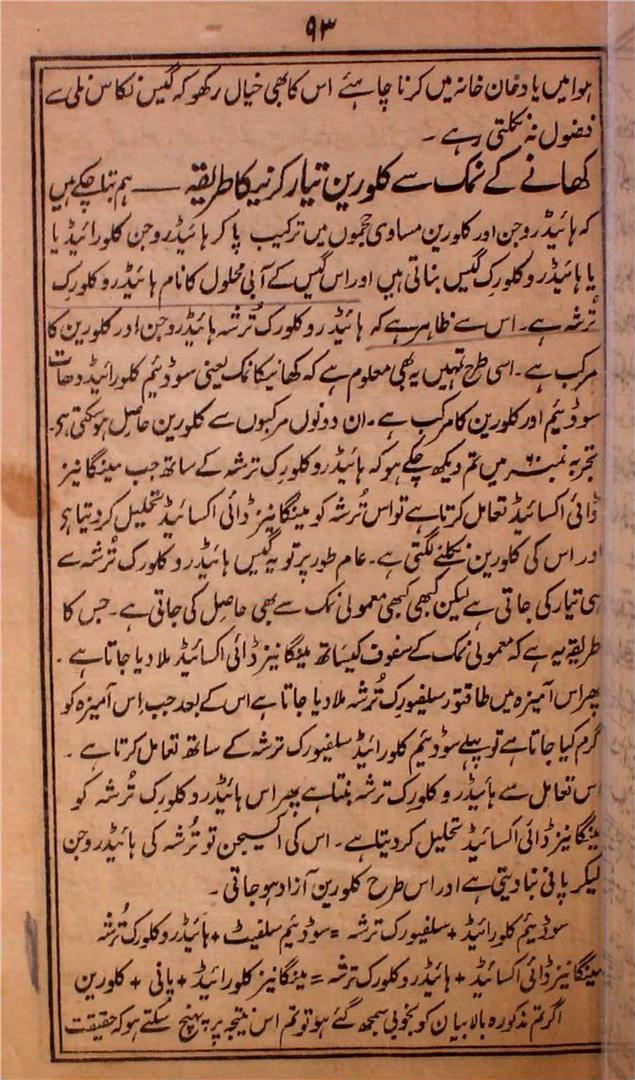 ۹۳
ہوا میں یا دخان خانہ میں کرنا چاہئے اس کا بھی خیال رکھو کہ گیس نکاس نلی سے
فضول نہ نکلتی رہے ۔
کھانے کے نمک سے کلورین تیار کرنیکا طریقہ ــــ ہم بتا چکے ہیں
کہ ہائیڈروجن اور کلورین مساوی حجموں میں ترکیب پا کر ہائیڈروجن کلورائیڈ یا
یا ہائیڈروکلورک گیس بناتی ہیں اور اس گیس کے آبی محلول کا نام ہائیڈروکلورک
تُرشہ ہے ۔ اس سے ظاہر ہے کہ ہائیڈروکلورک تُرشہ ہائیڈروجن اور کلورین کا
مرکب ہے ۔ اسی طرح تمہیں یہ بھی معلوم ہے کہ کھانیکا نمک یعنی سوڈیئم کلورائیڈ دھات
سوڈیئم اور کلورین کا مرکب ہے ۔ ان دونوں مرکبوں سے کلورین حاصل ہوسکتی ہی ۔
تجربہ نمبر ۶۰ میں تم دیکھ چکے ہو کہ ہائیڈروکلورک ترشہ کے ساتھ جب مینگانیز
ڈائی اکسائیڈ تعامل کرتا ہے تو اس تُرشہ کو مینگانیز ڈائی اکسائیڈ تحلیل کر دیتا ہی
اور اس کی کلورین نکلنے لگتی ہے ۔ عام طور پر تو یہ گیس ہائیڈروکلورک تُرشہ سے
ہی تیار کی جاتی ہے لیکن کبھی کبھی معمولی نمک سے بھی حاصل کی جاتی ہے ۔ جس کا
طریقہ یہ ہے کہ معمولی نمک کے سفوف کیساتھ مینگانیز ڈائی اکسائیڈ ملا دیا جاتا ہے ۔
پھر اس آمیزہ میں طاقتور سلفیورک تُرشہ ملا دیا جاتا ہے اس کے بعد جب اِس آمیزہ کو
گرم کیا جاتا ہے تو پہلے سوڈیئم کلورائیڈ سلفیورک ترشہ کے ساتھ تعامل کرتا ہے ۔
اس تعامل سے ہائیڈروکلورک ترشہ بنتا ہے پھر اس ہائیڈروکلورک تُرشہ کو
مینگانیز ڈائی اکسائیڈ تحلیل کر دیتا ہے ۔ اس کی آکسیجن تو تُرشہ کی ہائیڈروجن
لیکر پانی بنا دیتی ہے اور اس طرح کلورین آزاد ہو جاتی ۔
سوڈیئم کلورائیڈ + سلفیورک ترشہ = سوڈیئم سلفیٹ + ہائیڈروکلورک تُرشہ
مینگانیز ڈائی اکسائیڈ + ہائیڈروکلورک ترشہ = مینگانیز کلورائیڈ + پانی + کلورین
اگر تم مذکورہ بالا بیان کو بخوبی سمجھ گئے ہو تو تم اس نتیجہ پر پہنچ سکتے ہو کہ حقیقت